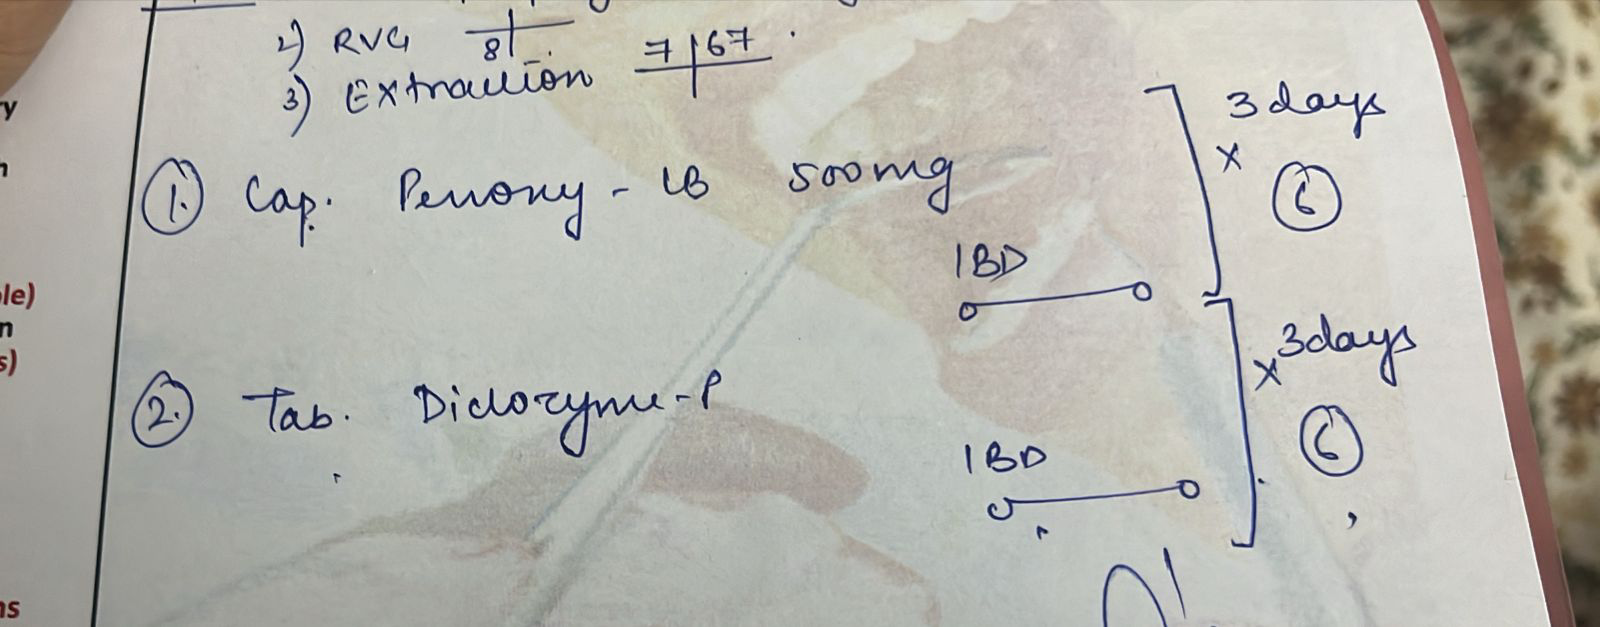 2) RVG 8
3) Extraction 7 67
1. Cap. Pennoxy-LB 500mg
1BD
x 3 days
6
2. Tab. Diclozyme-P
1BD
x 3days
6
le)
s)